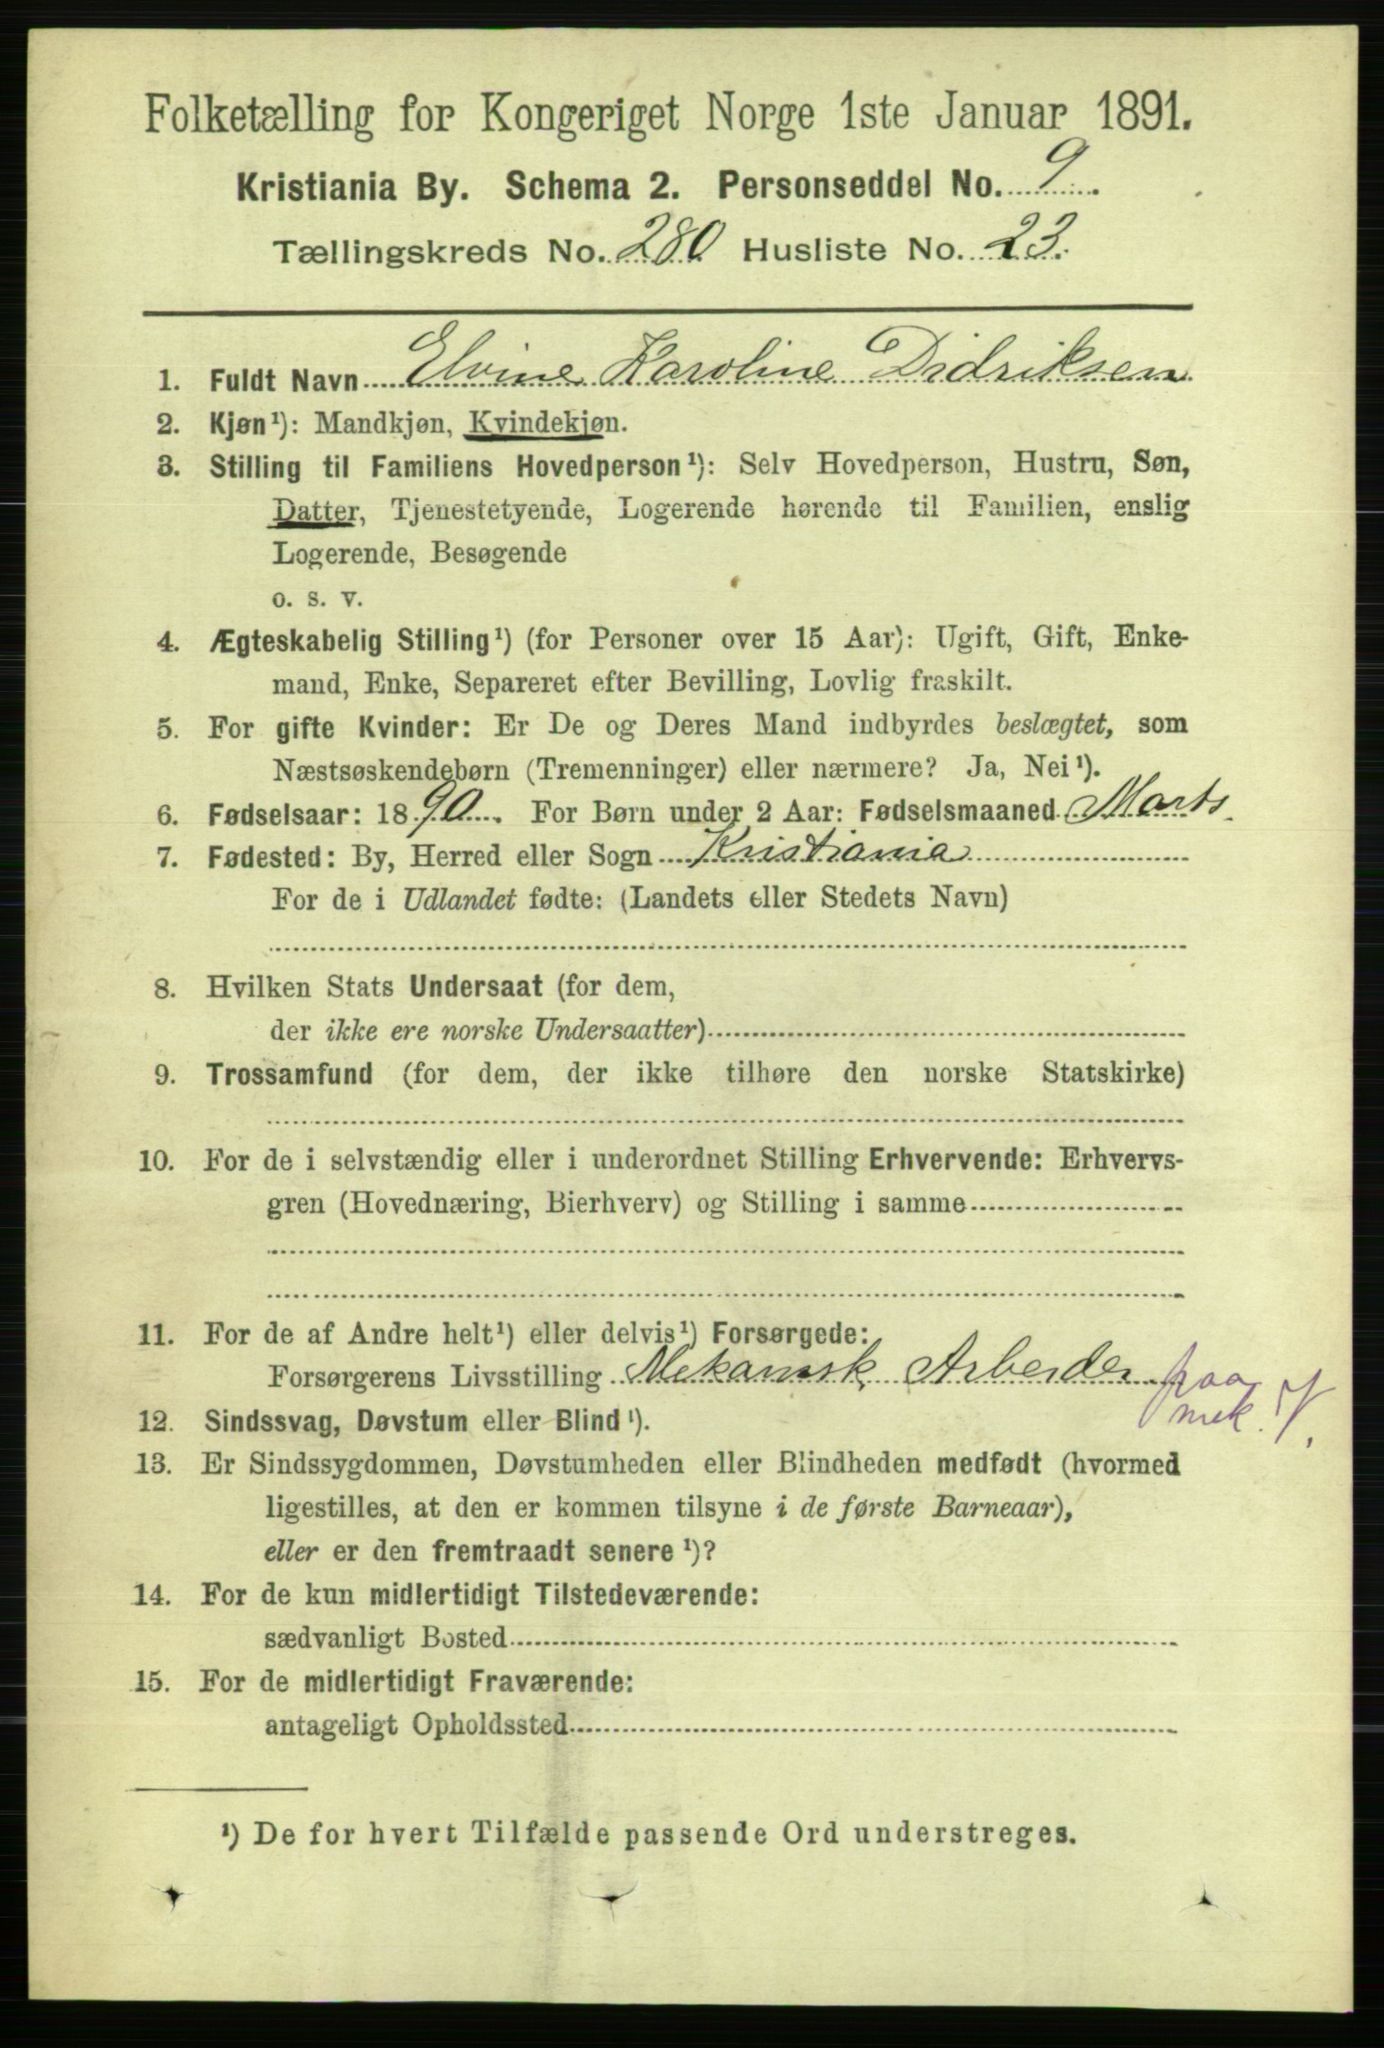 Folketælling for Kongeriget Norge 1ste Januar 1891.
Kristiania By. Schema 2. Personseddel No. 9.
Tællingskreds No. 280 Husliste No. 23.
1. Fuldt Navn Elvine Karoline Didriksen
2. Kjøn¹): Mandkjøn, Kvindekjøn.
3. Stilling til Familiens Hovedperson¹): Selv Hovedperson, Hustru, Søn,
Datter, Tjenestetyende, Logerende hørende til Familien, enslig
Logerende, Besøgende
o. s. v.
4. Ægteskabelig Stilling¹) (for Personer over 15 Aar): Ugift, Gift, Enke-
mand, Enke, Separeret efter Bevilling, Lovlig fraskilt.
5. For gifte Kvinder: Er De og Deres Mand indbyrdes beslægtet, som
Næstsøskendebørn (Tremenninger) eller nærmere? Ja, Nei¹).
6. Fødselsaar: 1890. For Børn under 2 Aar: Fødselsmaaned Marts.
7. Fødested: By, Herred eller Sogn Kristiania
For de i Udlandet fødte: (Landets eller Stedets Navn)
8. Hvilken Stats Undersaat (for dem,
der ikke ere norske Undersaatter)
9. Trossamfund (for dem, der ikke tilhøre den norske Statskirke)
10. For de i selvstændig eller i underordnet Stilling Erhvervende: Erhvervs-
gren (Hovednæring, Bierhverv) og Stilling i samme
11. For de af Andre helt¹) eller delvis¹) Forsørgede:
Forsørgerens Livsstilling Mekanisk Arbeider paa
mek. V.
12. Sindssvag, Døvstum eller Blind¹).
13. Er Sindssygdommen, Døvstumheden eller Blindheden medfødt (hvormed
ligestilles, at den er kommen tilsyne i de første Barneaar),
eller er den fremtraadt senere¹)?
14. For de kun midlertidigt Tilstedeværende:
sædvanligt Bosted
15. For de midlertidigt Fraværende:
antageligt Opholdssted
¹) De for hvert Tilfælde passende Ord understreges.